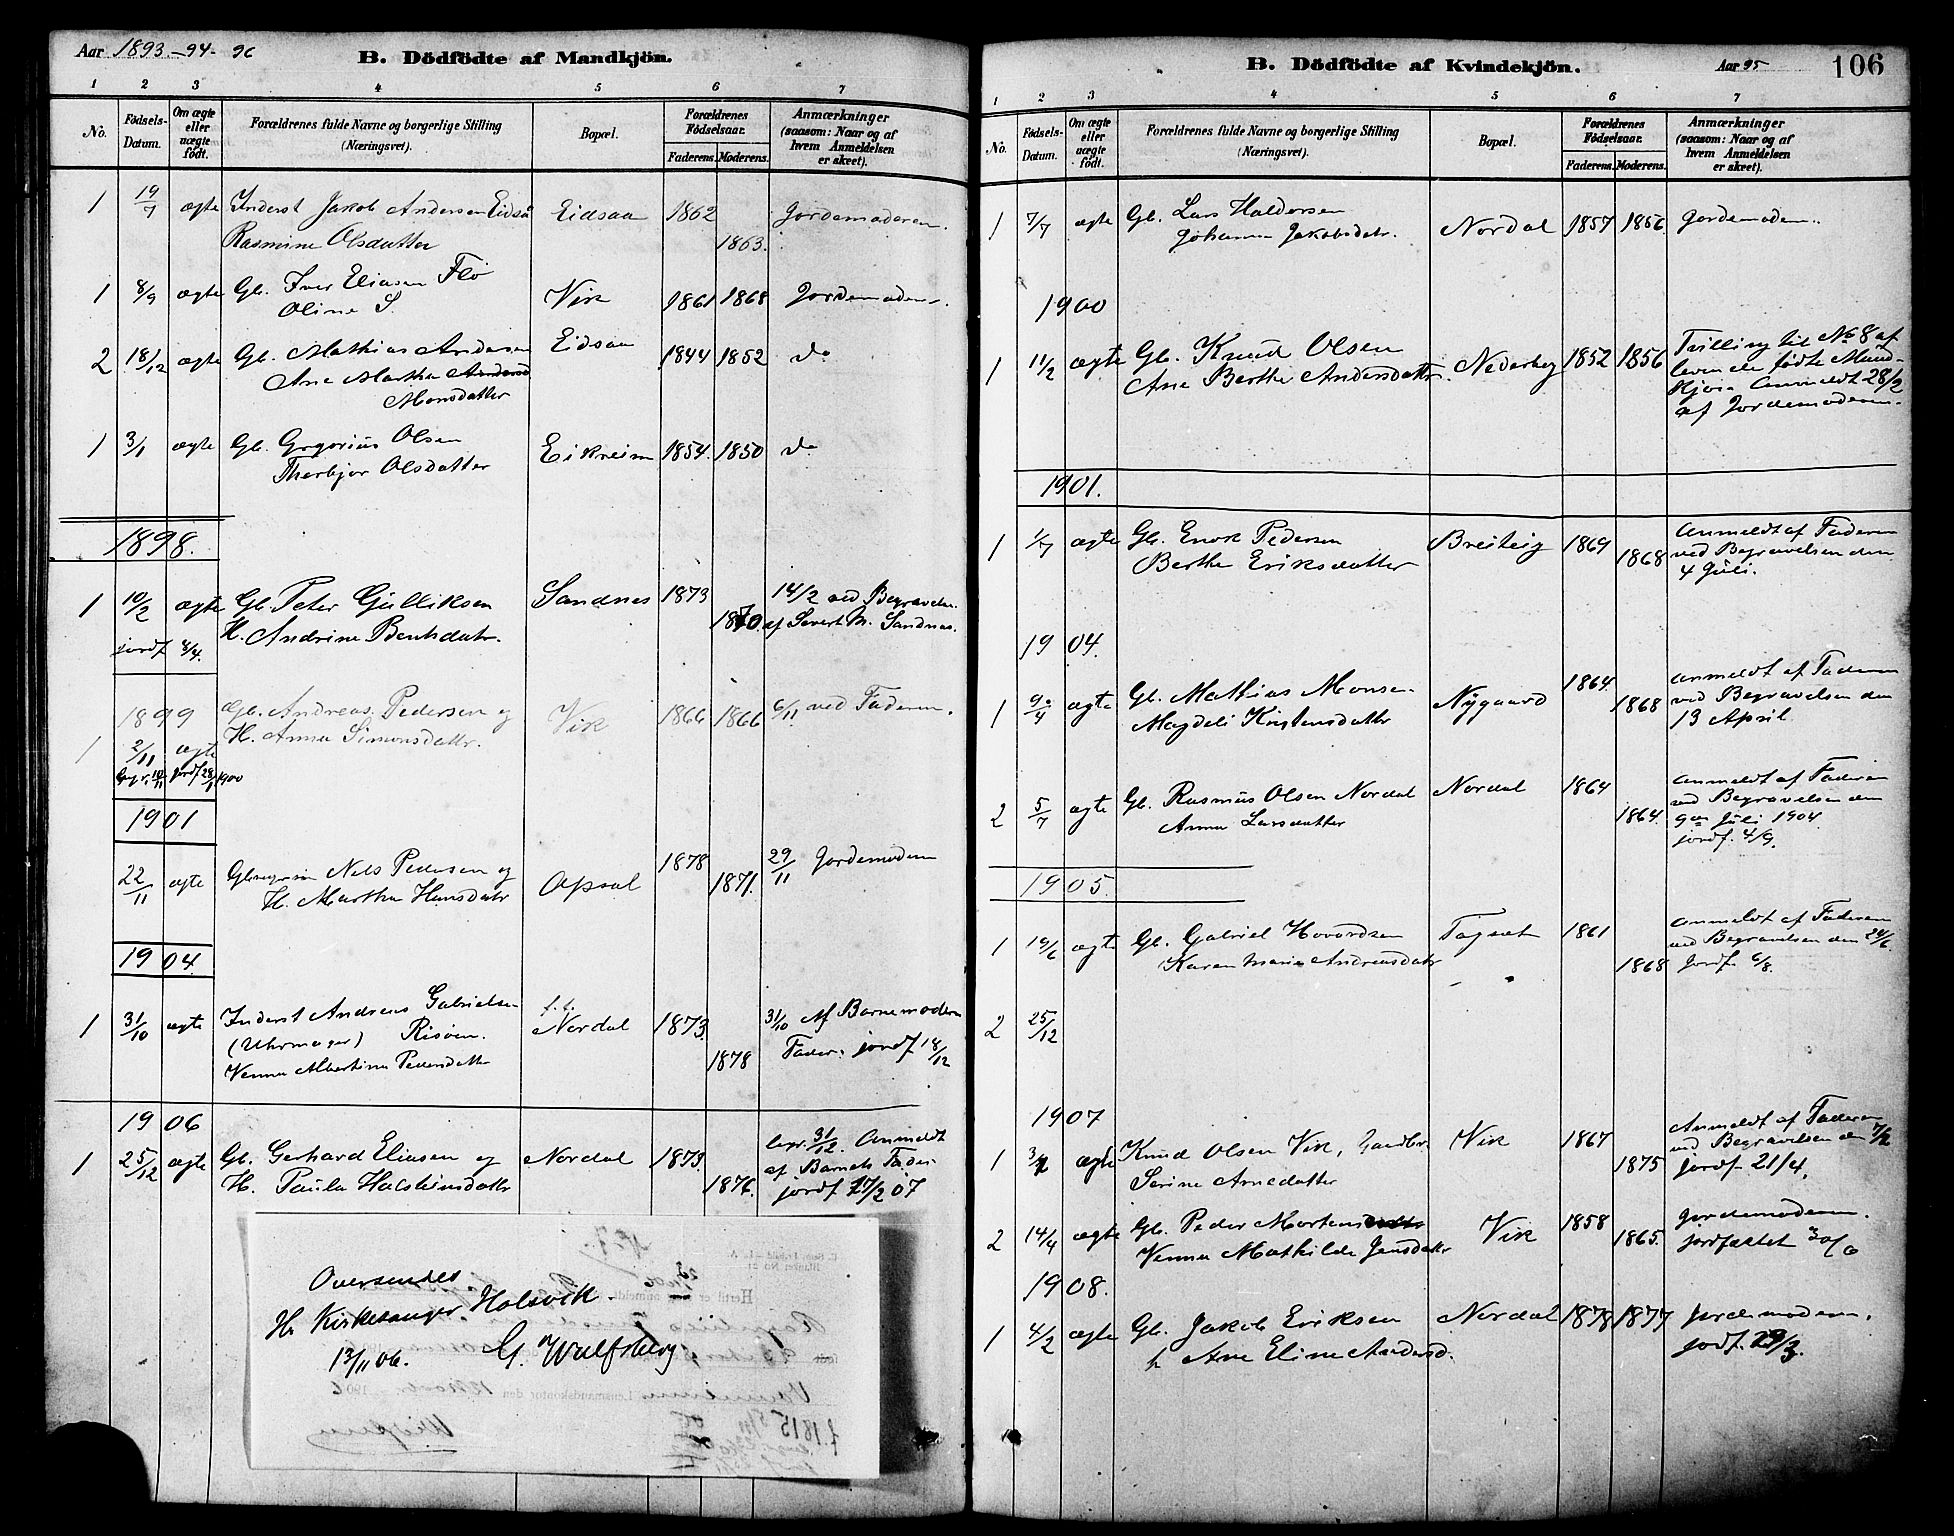 Aar 1893-94-96
B. Dödfödte af Mandkjön.
1 2 3 4 5 6 7
No. Födsels-Datum. Om ægte eller uægte födt. Forældrenes fulde Navne og borgerlige Stilling (Næringsvei). Bopæl. Forældrenes Födselsaar. Faderens. Moderens. Anmærkninger (saasom: Naar og af hvem Anmeldelsen er skeet).
1 19/7 ægte Inderst Jakob Andersen Eidsaa Eidsaa 1862 Jordemoderen.
Rasmine Olsdatter 1863.
1 8/9 ægte Gb. Iver Eliasen Flö Vik 1861 1868 Jordemoderen.
Oline S.
2 18/12 ægte Gb. Mathias Andersen Eidsaa 1844 1852 do
Ane Marthe
Monsdatter
1 3/1 ægte Gb. Gregorius Olsen Eikreim 1854. 1850 do
Therbjør Olsdatter
1898.
1 10/2 ægte Gb. Peter Gulliksen Sandnes 1873 14/2 ved Begravelsen
H. Andrine Bentsdatr. 1870. af Sivert M. Sandnes.
jordf 8/4.
1899 Gb. Andreas Pedersen og Vik 1866 1866 6/11 ved Faderen.
H. Anna Simonsdatr.
1 2/11 ægte
begr. 10/11 jordf 28/ 1900
1901
22/11 ægte Nils Pedersen og Opsal 1878 29/11 Jordemoderen
H. Martha Hansdatr 1871.
1904
1 31/10 ægte Inderst Andreas Gabrielsen t.t. Nordal 1873. 31/10 Af Barnemoderen
(Uhrmager) Risöen. 1878 Fader. jordf 18/12
Venna Albertine Pedersdatter
1906
1 25/12 ægte Gb. Gerhard Eliasen og Nordal 1873. begr. 31/12. Anmeldt
H. Paula Halsteinsdatter 1876. af Barnets Fader
jordf 17/2 07
Oversendes
Hr Kirkesanger Halsvik.
13/11 06. G. Wulfsberg
B. Dödfödte af Kvindekjön.
Aar 95
106
1 2 3 4 5 6 7
No. Födsels-Datum. Om ægte eller uægte födt. Forældrenes fulde Navne og borgerlige Stilling (Næringsvei). Bopæl. Forældrenes Födselsaar. Faderens. Moderens. Anmærkninger (saasom: Naar og af hvem Anmeldelsen er skeet).
1 7/7 ægte Gb. Lars Haldorsen Nordal 1857 1856 Jordemoderen.
Johanna Jakobsdatr.
1900
1 11/2 ægte Gb. Knud Olsen Nedreberg 1852 1856 Tvilling til No 8 af
Ane Berthe Andersdatter. levende fødte Mand-
kjøn. Anmeldt 28/2
af Jordemoderen.
1901.
1 1/7 ægte Gb. Enok Pedersen Breiteig 1869 Anmeldt af Faderen
Berthe Eriksdatter 1868 ved Begravelsen den
4 Juli.
1904.
1 9/4 ægte Gb. Mathias Monsen Nygaard 1864. Anmeldt af Faderen
Magdeli Kristensdatter 1868 ved Begravelsen den
13 April.
2 5/7 ægte Gb. Rasmus Olsen Nordal Nordal 1864 Anmeldt af Faderen
Anna Larsdatter 1864. ved Begravelsen den
9de Juli 1904
jordf. 4/9.
1905.
1 19/6 ægte Gb. Gabriel Hovardsen 1861 Anmeldt af Faderen
Karen Marie Andreasdatr 1868 ved Begravelsen den 24/6
Jordf. 6/8.
2 25/12
1907
1 ægte Knud Olsen Vik, Gaardbr. Vik 1867 Anmeldt af Faderen
Serine Arnedatter 1875 ved Begravelsen den 7/2
jordf. 21/4.
2 14/4 ægte Gb. Peder Mortens Vik 1858 Jordemoderen.
Venna Mathilde Jensdatter 1865. jordfæstet 30/6
1908.
1 4/2 ægte Gb. Jakob Eriksen Nordal 1878 1877 Jordemoderen.
h Ane Eline Andersd. jordf. 29/3.